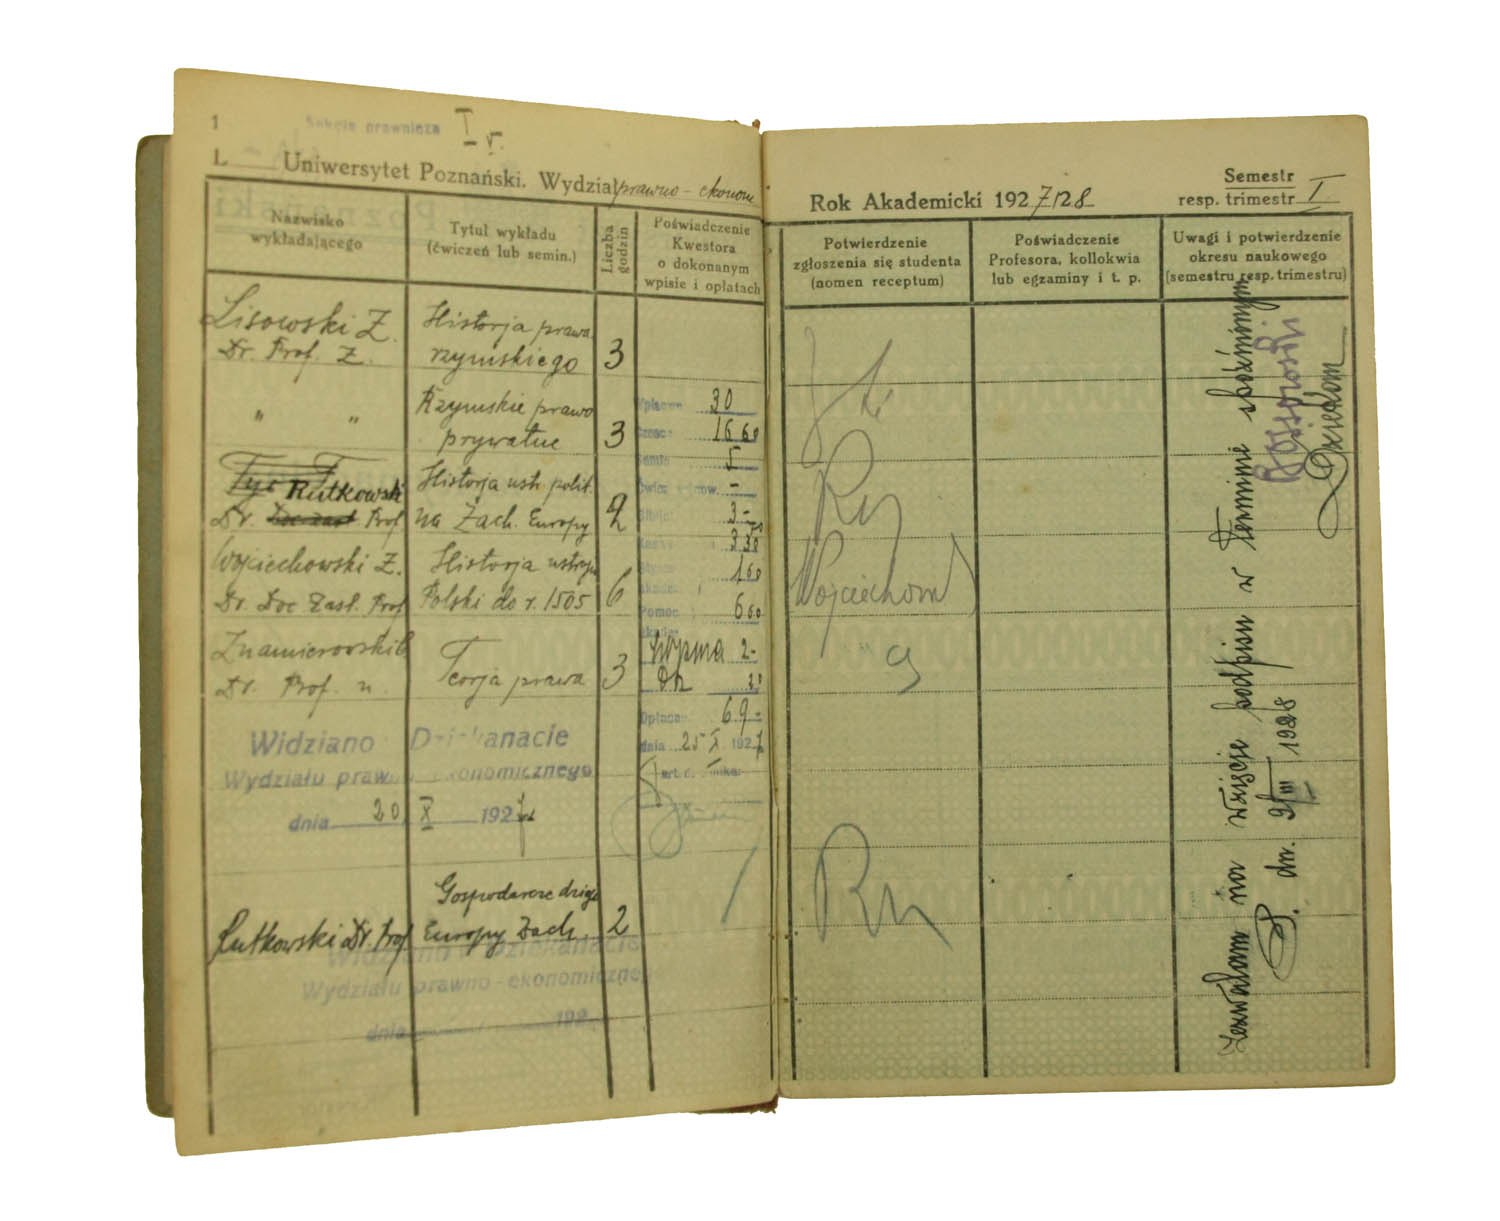 1
Sekcja prawnicza I r.
L. Uniwersytet Poznański. Wydział prawno - ekonom
Nazwisko wykładającego
Tytuł wykładu (ćwiczeń lub semin.)
Liczba godzin
Poświadczenie Kwestora o dokonanym wpisie i opłatach
Lisowski Z.
Dr. Prof. Z.
Historja prawa
rzymskiego
3
" "
Rzymskie prawo
prywatne
3
Rutkowski
Dr. Prof
Historja ustr. polit.
na Zach. Europy
2
Wojciechowski Z.
Dr. Doc Zast. Prof
Historja ustroju
Polski do r. 1505
6
Znamierowski C
Dr. Prof. n.
Teorja prawa
3
Wpisowe 30
Czesne 16 60
5
-
3 -
3 30
1 60
Pomoc 6 60
2 -
Opłacono 69 -
dnia 25 X 1927
Widziano w Dziekanacie
Wydziału prawno-ekonomicznego
dnia 20 X 1927
Rutkowski Dr. Prof
Gospodarcze dzieje
Europy Zach.
2
Widziano w Dziekanacie
Wydziału prawno-ekonomicznego
dnia 192
Rok Akademicki 1927/28
Semestr
resp. trimestr I.
Potwierdzenie
zgłoszenia się studenta
(nomen receptum)
Poświadczenie
Profesora, kollokwia
lub egzaminy i t. p.
Uwagi i potwierdzenie
okresu naukowego
(semestru resp. trimestru)
Wojciechowski
Zezwalam na wzięcie podpisu w terminie spóźnionym
P. dn. 9/III 1928
Dziekan